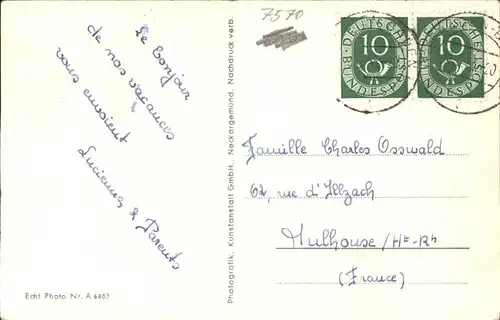 7570
Le bonjour
de nos vacances
vous envoient
Lucienne & Parents
Echt Photo Nr. A 6803
Photografik, Kunstanstalt GmbH., Neckargemünd. Nachdruck verb.
DEUTSCHE
10
BUNDESPOST
DEUTSCHE
10
BUNDESPOST
Famille Charles Osswald
62, rue d'Illzach
Mulhouse/Ht-Rh
(France)